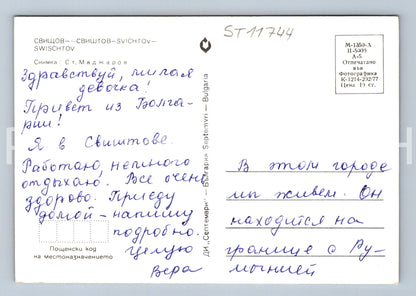 СВИЩОВ — СВИШТОВ-SVICHTOV-
SWISCHTOV
Снимка: Ст. Маджаров
Здравствуй, милая
девочка!
Привет из Болга-
рии!
Я в Свиштове.
Работаю, немного
отдыхаю. Все очень
здорово. Приеду
домой - напишу
подробно.
Целую
Вера
Пощенски код
на местоназначението
ДИ „Септември" — България Septemvri — Bulgaria
ST11744
М-1350-А
А-5
Отпечатано
във
Фотографика
К-1214-292/77
Цена 15 ст.
В этом городе
мы живем. Он
находится на
границе с Ру-
мынией